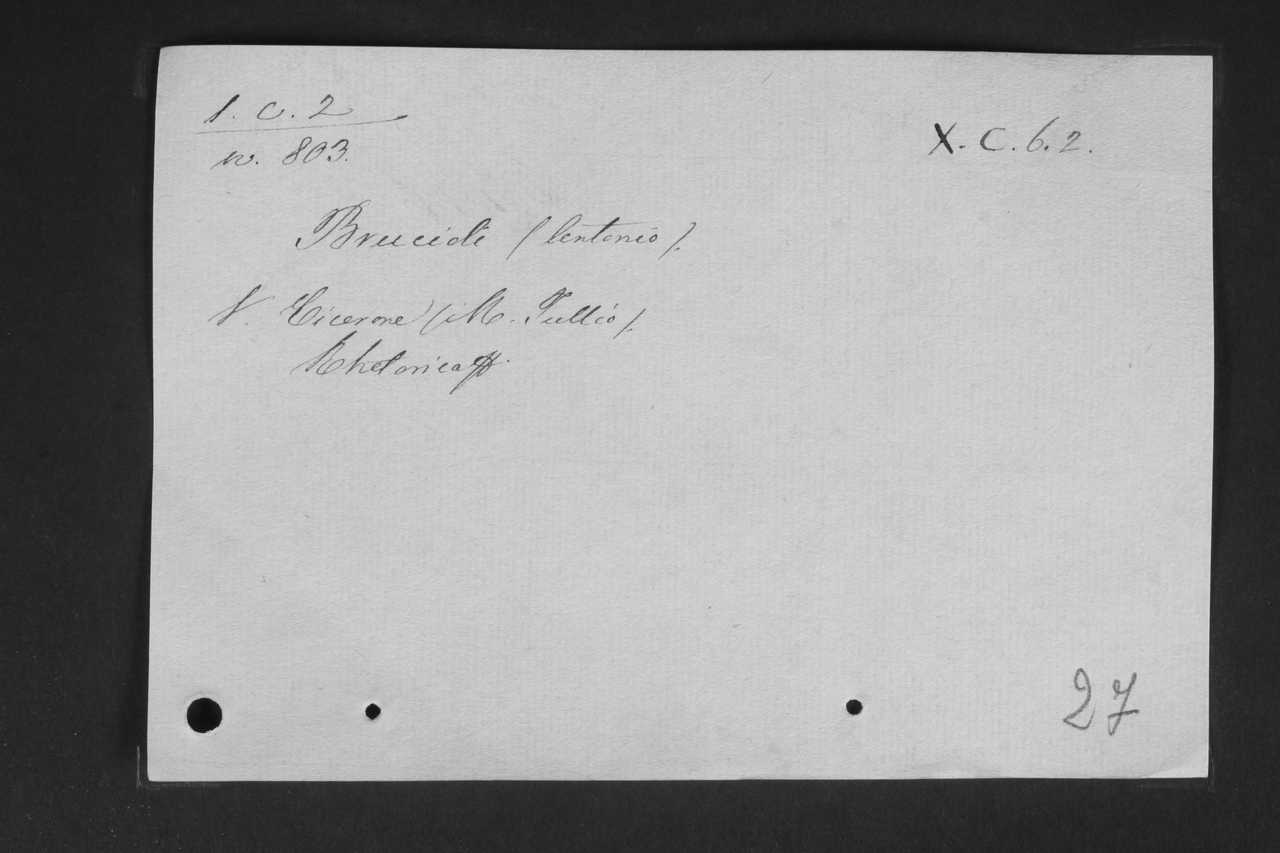 1. C. 2
n. 803.
X. C. 6. 2.
Brucioli (Antonio).
V. Cicerone (M. Tullio).
Rhetorica
27